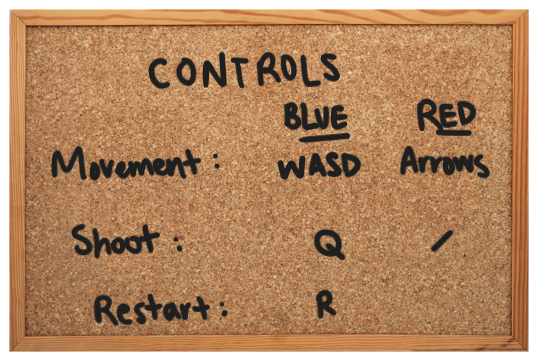 CONTROLS
BLUE RED
Movement: WASD Arrows
Shoot: Q /
Restart: R